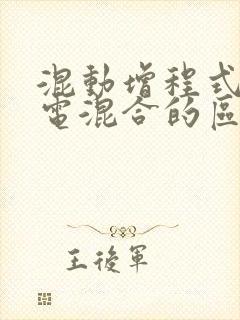 混動增程式
電混合的區
王後軍